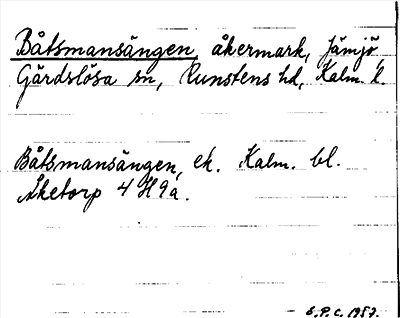 Båtsmansängen, åkermark, Jämjö,
Gärdslösa sn, Runstens hd, Kalm. l.
Båtsmansängen, ek. Kalm. bl.
Åketorp 4 H 9 a.
S.P.C. 1957.